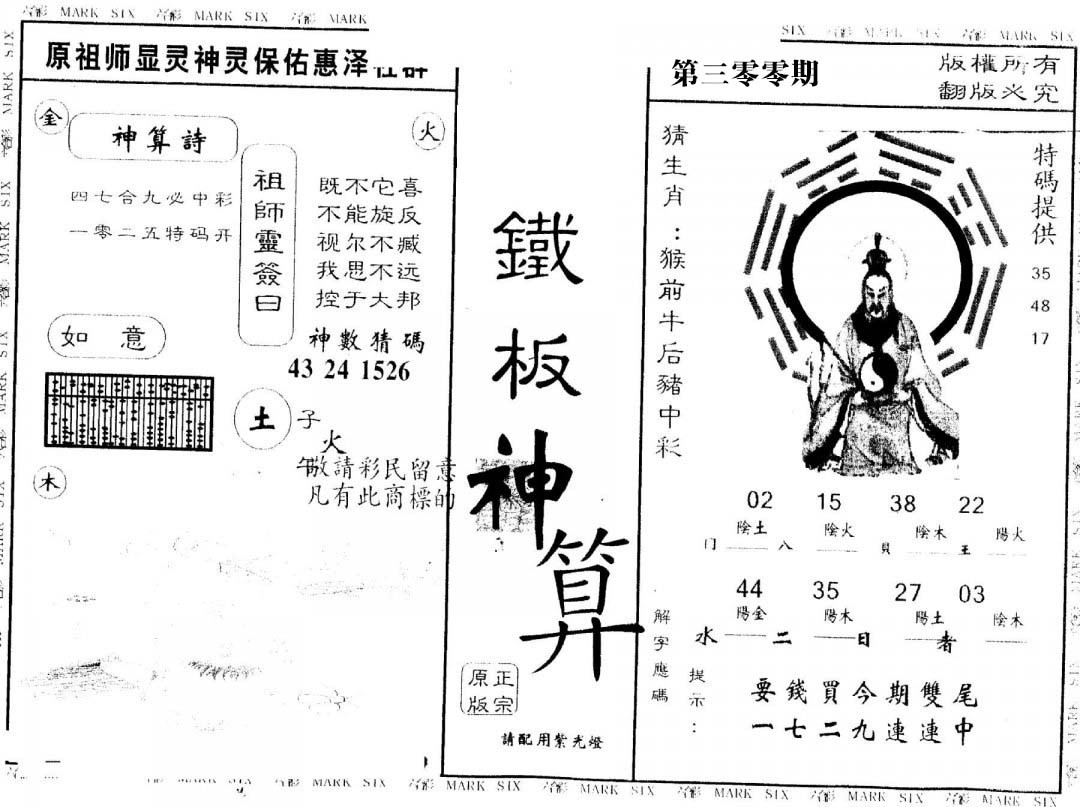 六彩 MARK SIX 六彩 MARK SIX 六彩 MARK
原祖师显灵神灵保佑惠泽社群
金
火
神算詩
四七合九必中彩
一零二五特码开
祖師靈簽曰
既不它喜
不能旋反
视尔不臧
我思不远
控于大邦
神數猜碼
43 24 1526
如 意
土
子
火
午
木
敬請彩民留意
凡有此商標的
鐵板神算
正宗
原版
請配用紫光燈
第三零零期
版權所有
翻版必究
猜生肖：猴前牛后豬中彩
特碼提供
35
48
17
02 15 38 22
陰土 陰火 陰木 陽火
门 八 貝 王
44 35 27 03
陽金 陽木 陽土 陰木
水 二 日 者
解字應碼
提示：
要錢買今期雙尾
一七二九連連中
六彩 MARK SIX 六彩 MARK SIX 六彩 MARK SIX 六彩 MARK SIX 六彩 MARK SIX